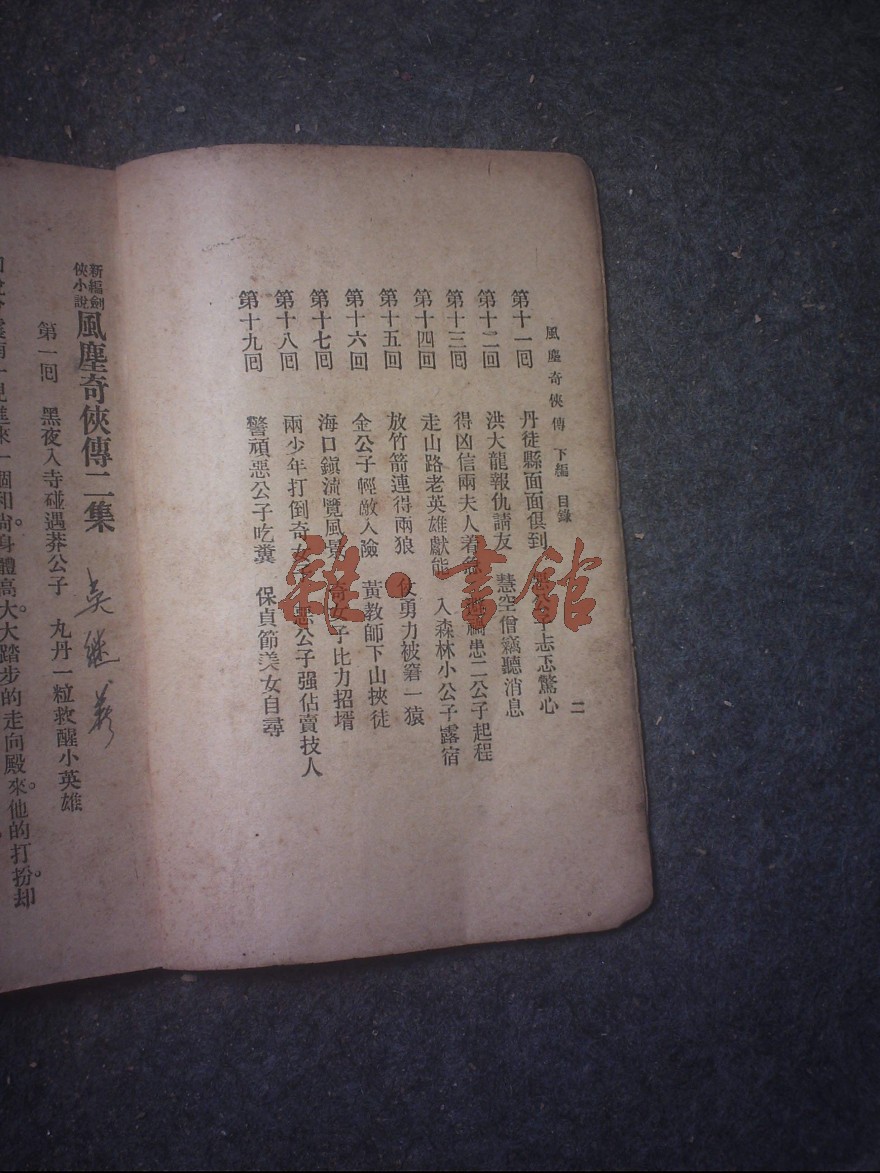 風塵奇俠傳 下編 目錄 二
第十一回 丹徒縣面面俱到 公子忐忑驚心
第十二回 洪大龍報仇請友 慧空僧竊聽消息
第十三回 得凶信兩夫人着 避禍患二公子起程
第十四回 走山路老英雄獻能 入森林小公子露宿
第十五回 放竹箭連得兩狼 仗勇力被窘一猿
第十六回 金公子輕敵入險 黃教師下山挾徒
第十七回 海口鎭流覽風景 奇女子比力招壻
第十八回 兩少年打倒奇女 惡公子强佔賣技人
第十九回 警頑惡公子吃糞 保貞節美女自尋
雜·書館
新編劍俠小說 風塵奇俠傳二集
吳繼
第一回 黑夜入寺碰遇莽公子 九丹一粒救醒小英雄
見進來一個和尙身體高大。大踏步的走向殿來。他的打扮却